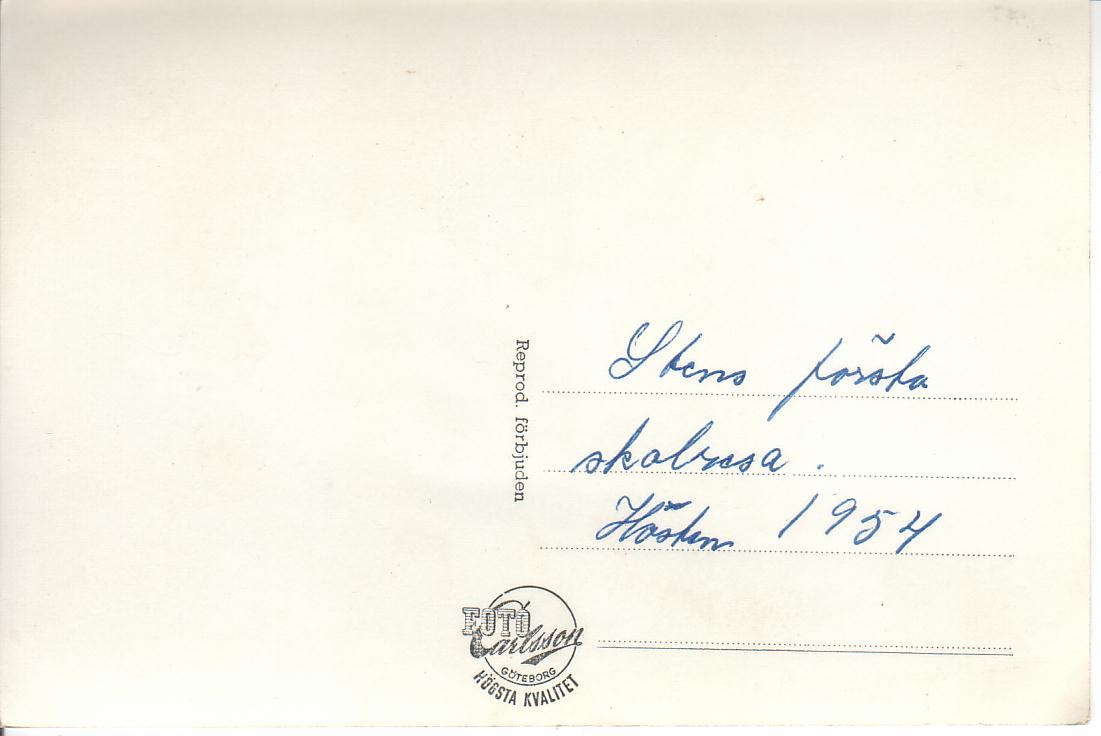 Reprod. förbjuden
Stens första
skolresa.
Hösten 1954
FOTO
Carlsson
GÖTEBORG
HÖGSTA KVALITET